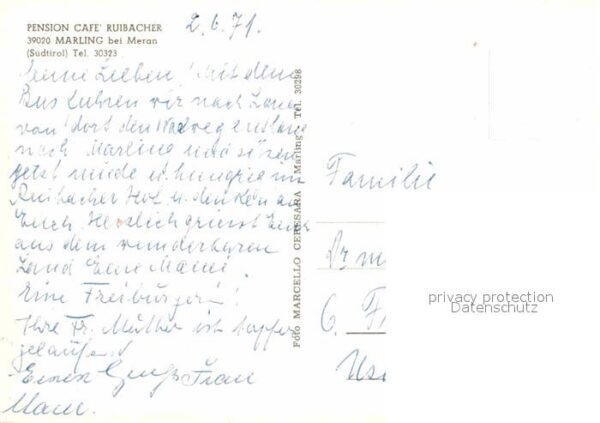 PENSION CAFE' RUIBACHER
39020 MARLING bei Meran
(Südtirol) Tel. 30323
2.6.71.
Meine Lieben! Mit dem
Bus fuhren wir nach Lana
von dort den Waalweg entlang
nach Marling und sitzen
jetzt müde u. hungrig im
Ruibacher Hof u. denken an
Euch. Herzlich grüsst Euch
aus dem wunderbaren
Land Eure Mami.
Eine Freiburgerin!
Ihre Fr. Mutter ist tapfer
gelaufen!
Frau
Foto MARCELLO CERESARA - Marling - Tel. 30298
Familie
Dr
6.
privacy protection
Datenschutz